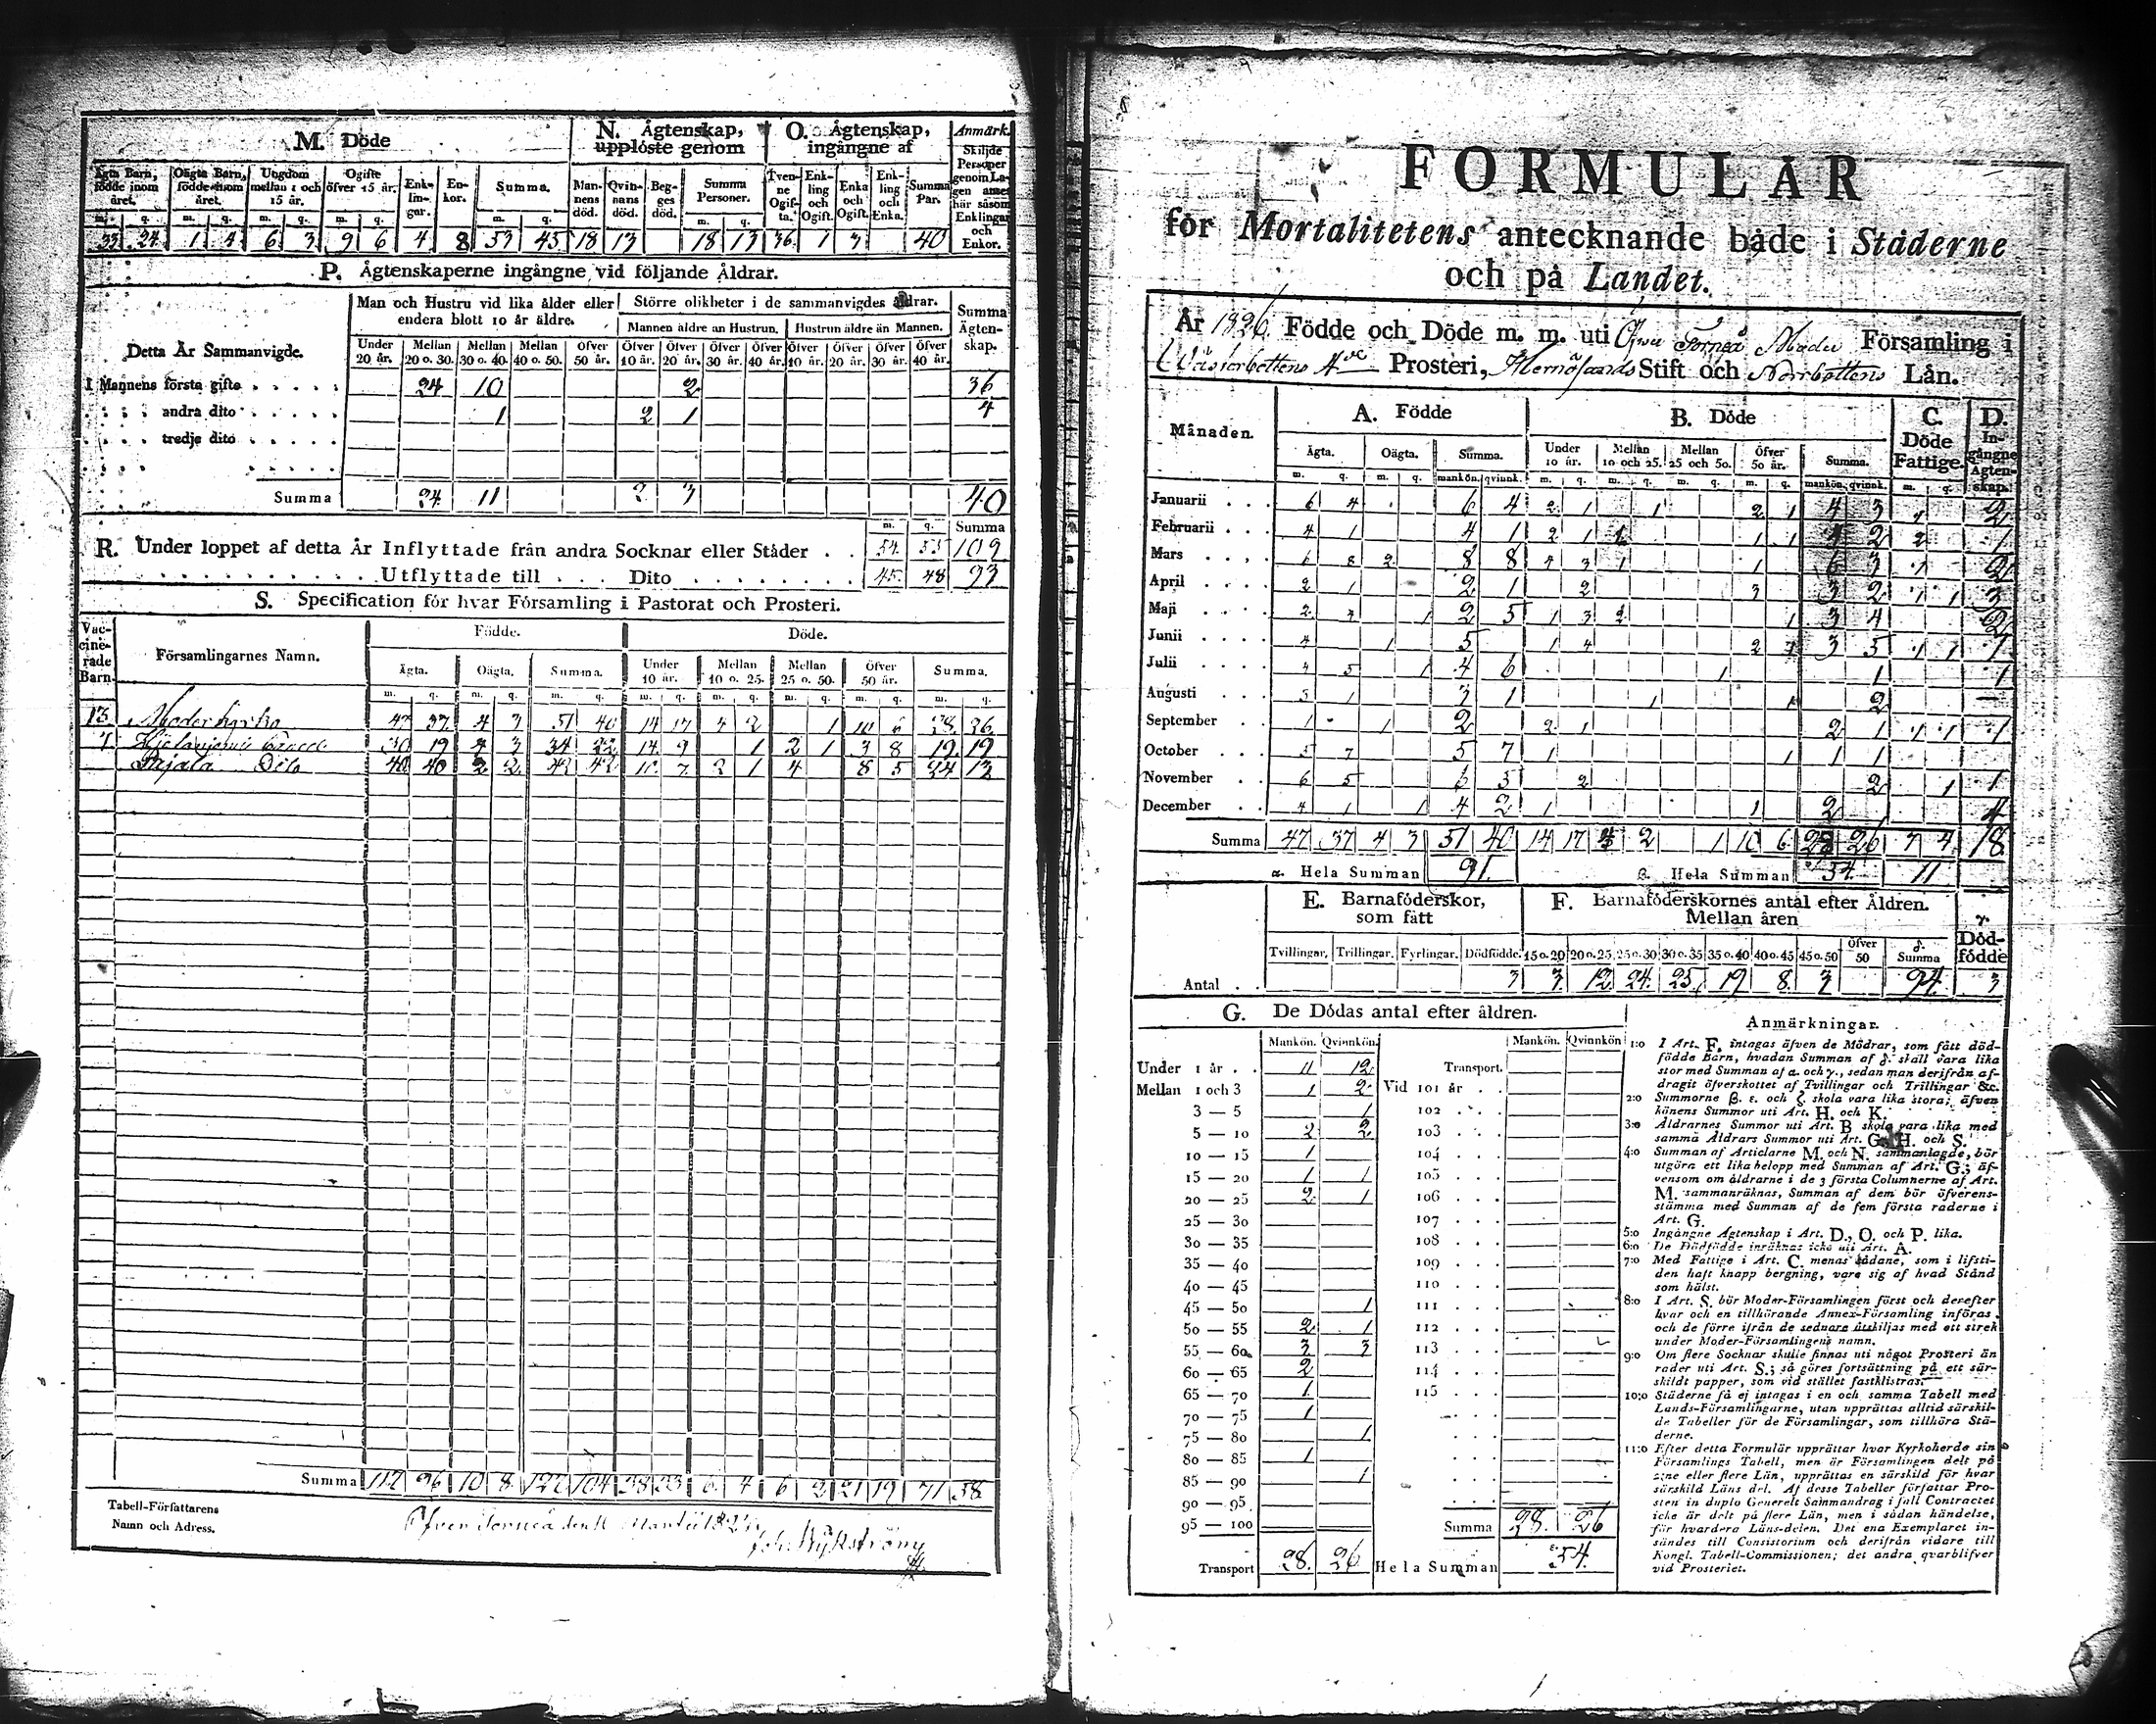 M. Döde
N. Ägtenskap, upplöste genom
O. Ägtenskap, ingångne af
Anmärk. Skiljde Personer genom Lagen antes här såsom Enklingar och Enkor.
Ägta Barn, födde inom året. Oägta Barn, födde inom året. Ungdom mellan 1 och 15 år. Ogifte öfver 15 år. Enklingar. Enkor. Summa. Mannens död. Qvinnans död. Begges död. Summa Personer. Tvenne Ogifta. Enkling och Ogift. Enka och Ogift. Enkling och Enka. Summa Par.
m. q. m. q. m. q. m. q. m. q. m. q.
33 24 1 4 6 3 9 6 4 8 53 45 18 13 18 13 36 1 3 40
P. Ägtenskaperne ingångne vid följande Åldrar.
Detta År Sammanvigde.
Man och Hustru vid lika ålder eller endera blott 10 år äldre.
Större olikheter i de sammanvigdes åldrar.
Summa Ägtenskap.
Mannen äldre än Hustrun. Hustrun äldre än Mannen.
Under 20 år. Mellan 20 o. 30. Mellan 30 o. 40. Mellan 40 o. 50. Öfver 50 år. Öfver 10 år. Öfver 20 år. Öfver 30 år. Öfver 40 år. Öfver 10 år. Öfver 20 år. Öfver 30 år. Öfver 40 år.
I Mannens första gifte . . . . . 24 10 2 36
andra dito . . . . . 1 2 1 4
tredje dito . . . . .
Summa 24 11 2 3 40
m. q. Summa
R. Under loppet af detta År Inflyttade från andra Socknar eller Städer . . 54 55 109
Utflyttade till . . . Dito . . . . . . . . 45 48 93
S. Specification för hvar Församling i Pastorat och Prosteri.
Vaccinerade Barn. Församlingarnes Namn. Födde. Döde.
Ägta. Oägta. Summa. Under 10 år. Mellan 10 o. 25. Mellan 25 o. 50. Öfver 50 år. Summa.
m. q. m. q. m. q. m. q. m. q. m. q. m. q. m. q.
13 Moderkyrko 47 37 4 3 51 40 14 17 4 2 1 10 6 28 26
30 19 4 3 34 22 14 9 1 2 1 3 8 19 19
Pajala Dito 40 40 2 2 42 42 10 7 2 1 4 8 5 24 13
Summa 117 96 10 8 127 104 38 33 6 4 6 2 21 19 71 58
Tabell-Författarens
Namn och Adress.
FORMULÄR
för Mortalitetens antecknande både i Städerne
och på Landet.
År 1826 Födde och Döde m. m. uti Öfver Torneå Moder Församling i
Västerbottens Prosteri, Hernösands Stift och Norrbottens Län.
Månaden. A. Födde B. Döde C. Döde Fattige. D. Ingångne Ägtenskap.
Ägta. Oägta. Summa. Under 10 år. Mellan 10 och 25. Mellan 25 och 50. Öfver 50 år. Summa.
m. q. m. q. mankön. qvinnk. m. q. m. q. m. q. m. q. mankön. qvinnk. m. q.
Januarii . . . 6 4 6 4 2 1 1 2 1 4 3 1 2
Februarii . . . 4 1 4 1 2 1 1 1 1 4 2 2 1
Mars . . . 6 8 2 8 8 4 3 1 1 6 3 1 2
April . . . . 2 1 2 1 2 3 3 2 1 1 3
Maji . . . . 2 4 1 2 5 1 3 2 1 3 4 2
Junii . . . . 4 1 5 1 4 2 1 3 5 1 1 1
Julii . . . . 4 5 1 4 6 1 1 1
Augusti . . . 3 1 3 1 1 1 2
September . . 1 1 2 2 1 2 1 1 1 1
October . . . 5 7 5 7 1 1 1 1
November . . 6 5 6 5 2 2 1 1
December . . 4 1 1 4 2 1 1 2 4
Summa 47 37 4 3 51 40 14 17 4 2 1 10 6 28 26 7 4 18
α. Hela Summan 91. β. Hela Summan 54. 11
E. Barnaföderskor, som fått
F. Barnaföderskornes antal efter Åldren. Mellan åren
γ. Dödfödde
Tvillingar. Trillingar. Fyrlingar. Dödfödde. 15 o. 20 20 o. 25 25 o. 30 30 o. 35 35 o. 40 40 o. 45 45 o. 50 Öfver 50 δ. Summa
Antal . . 3 3 12 24 25 19 8 3 94 3
G. De Dödas antal efter åldren.
Mankön. Qvinnkön. Mankön. Qvinnkön
Under 1 år . . 11 12 Transport.
Mellan 1 och 3 1 2 Vid 101 år . .
3 — 5 1 102 . . .
5 — 10 2 2 103 . . .
10 — 15 1 104 . . .
15 — 20 1 1 105 . . .
20 — 25 2 1 106 . . .
25 — 30 107 . . .
30 — 35 108 . . .
35 — 40 109 . . .
40 — 45 110 . . .
45 — 50 1 111 . . .
50 — 55 2 1 112 . . .
55 — 60 3 3 113 . . .
60 — 65 2 114 . . .
65 — 70 1 115 . . .
70 — 75 1
75 — 80 1
80 — 85 1
85 — 90 1
90 — 95
95 — 100 Summa 28. 26
Transport 28. 26 Hela Summan 54.
Anmärkningar.
1:o I Art. F. intagas äfven de Mödrar, som fått död-
födde Barn, hvadan Summan af δ. skall vara lika
stor med Summan af α. och γ., sedan man derifrån af-
dragit öfverskottet af Tvillingar och Trillingar &c.
2:o Summorne β. ε. och ζ. skola vara lika stora; äfven
könens Summor uti Art. H. och K.
3:o Åldrarnes Summor uti Art. B skola vara lika med
samma Åldrars Summor uti Art. G. H. och S.
4:o Summan af Articlarne M. och N. sammanlagde, bör
utgöra ett lika belopp med Summan af Art. G.; äf-
vensom om åldrarne i de 3 första Columnerne af Art.
M. sammanräknas, Summan af dem bör öfverens-
stämma med Summan af de fem första raderne i
Art. G.
5:o Ingångne Ägtenskap i Art. D., O. och P. lika.
6:o De Dödfödde inräknas icke uti Art. A.
7:o Med Fattige i Art. C. menas sådane, som i lifsti-
den haft knapp bergning, vare sig af hvad Stånd
som hälst.
8:o I Art. S. bör Moder-Församlingen först och derefter
hvar och en tillhörande Annex-Församling införas
och de förre ifrån de sednare åtskiljas med ett strek
under Moder-Församlingens namn.
9:o Om flere Socknar skulle finnas uti något Prosteri än
rader uti Art. S.; så göres fortsättning på ett sär-
skildt papper, som vid stället fastklistras.
10:o Städerne få ej intagas i en och samma Tabell med
Lands-Församlingarne, utan upprättas alltid särskil-
de Tabeller för de Församlingar, som tillhöra Stä-
derne.
11:o Efter detta Formulär upprättar hvar Kyrkoherde sin
Församlings Tabell, men är Församlingen delt på
2:ne eller flere Län, upprättas en särskild för hvar
särskild Läns del. Af desse Tabeller författar Pro-
sten in duplo Generelt Sammandrag i fall Contractet
icke är delt på flere Län, men i sådan händelse,
för hvardera Läns-delen. Det ena Exemplaret in-
sändes till Consistorium och derifrån vidare till
Kongl. Tabell-Commissionen; det andra qvarblifver
vid Prosteriet.